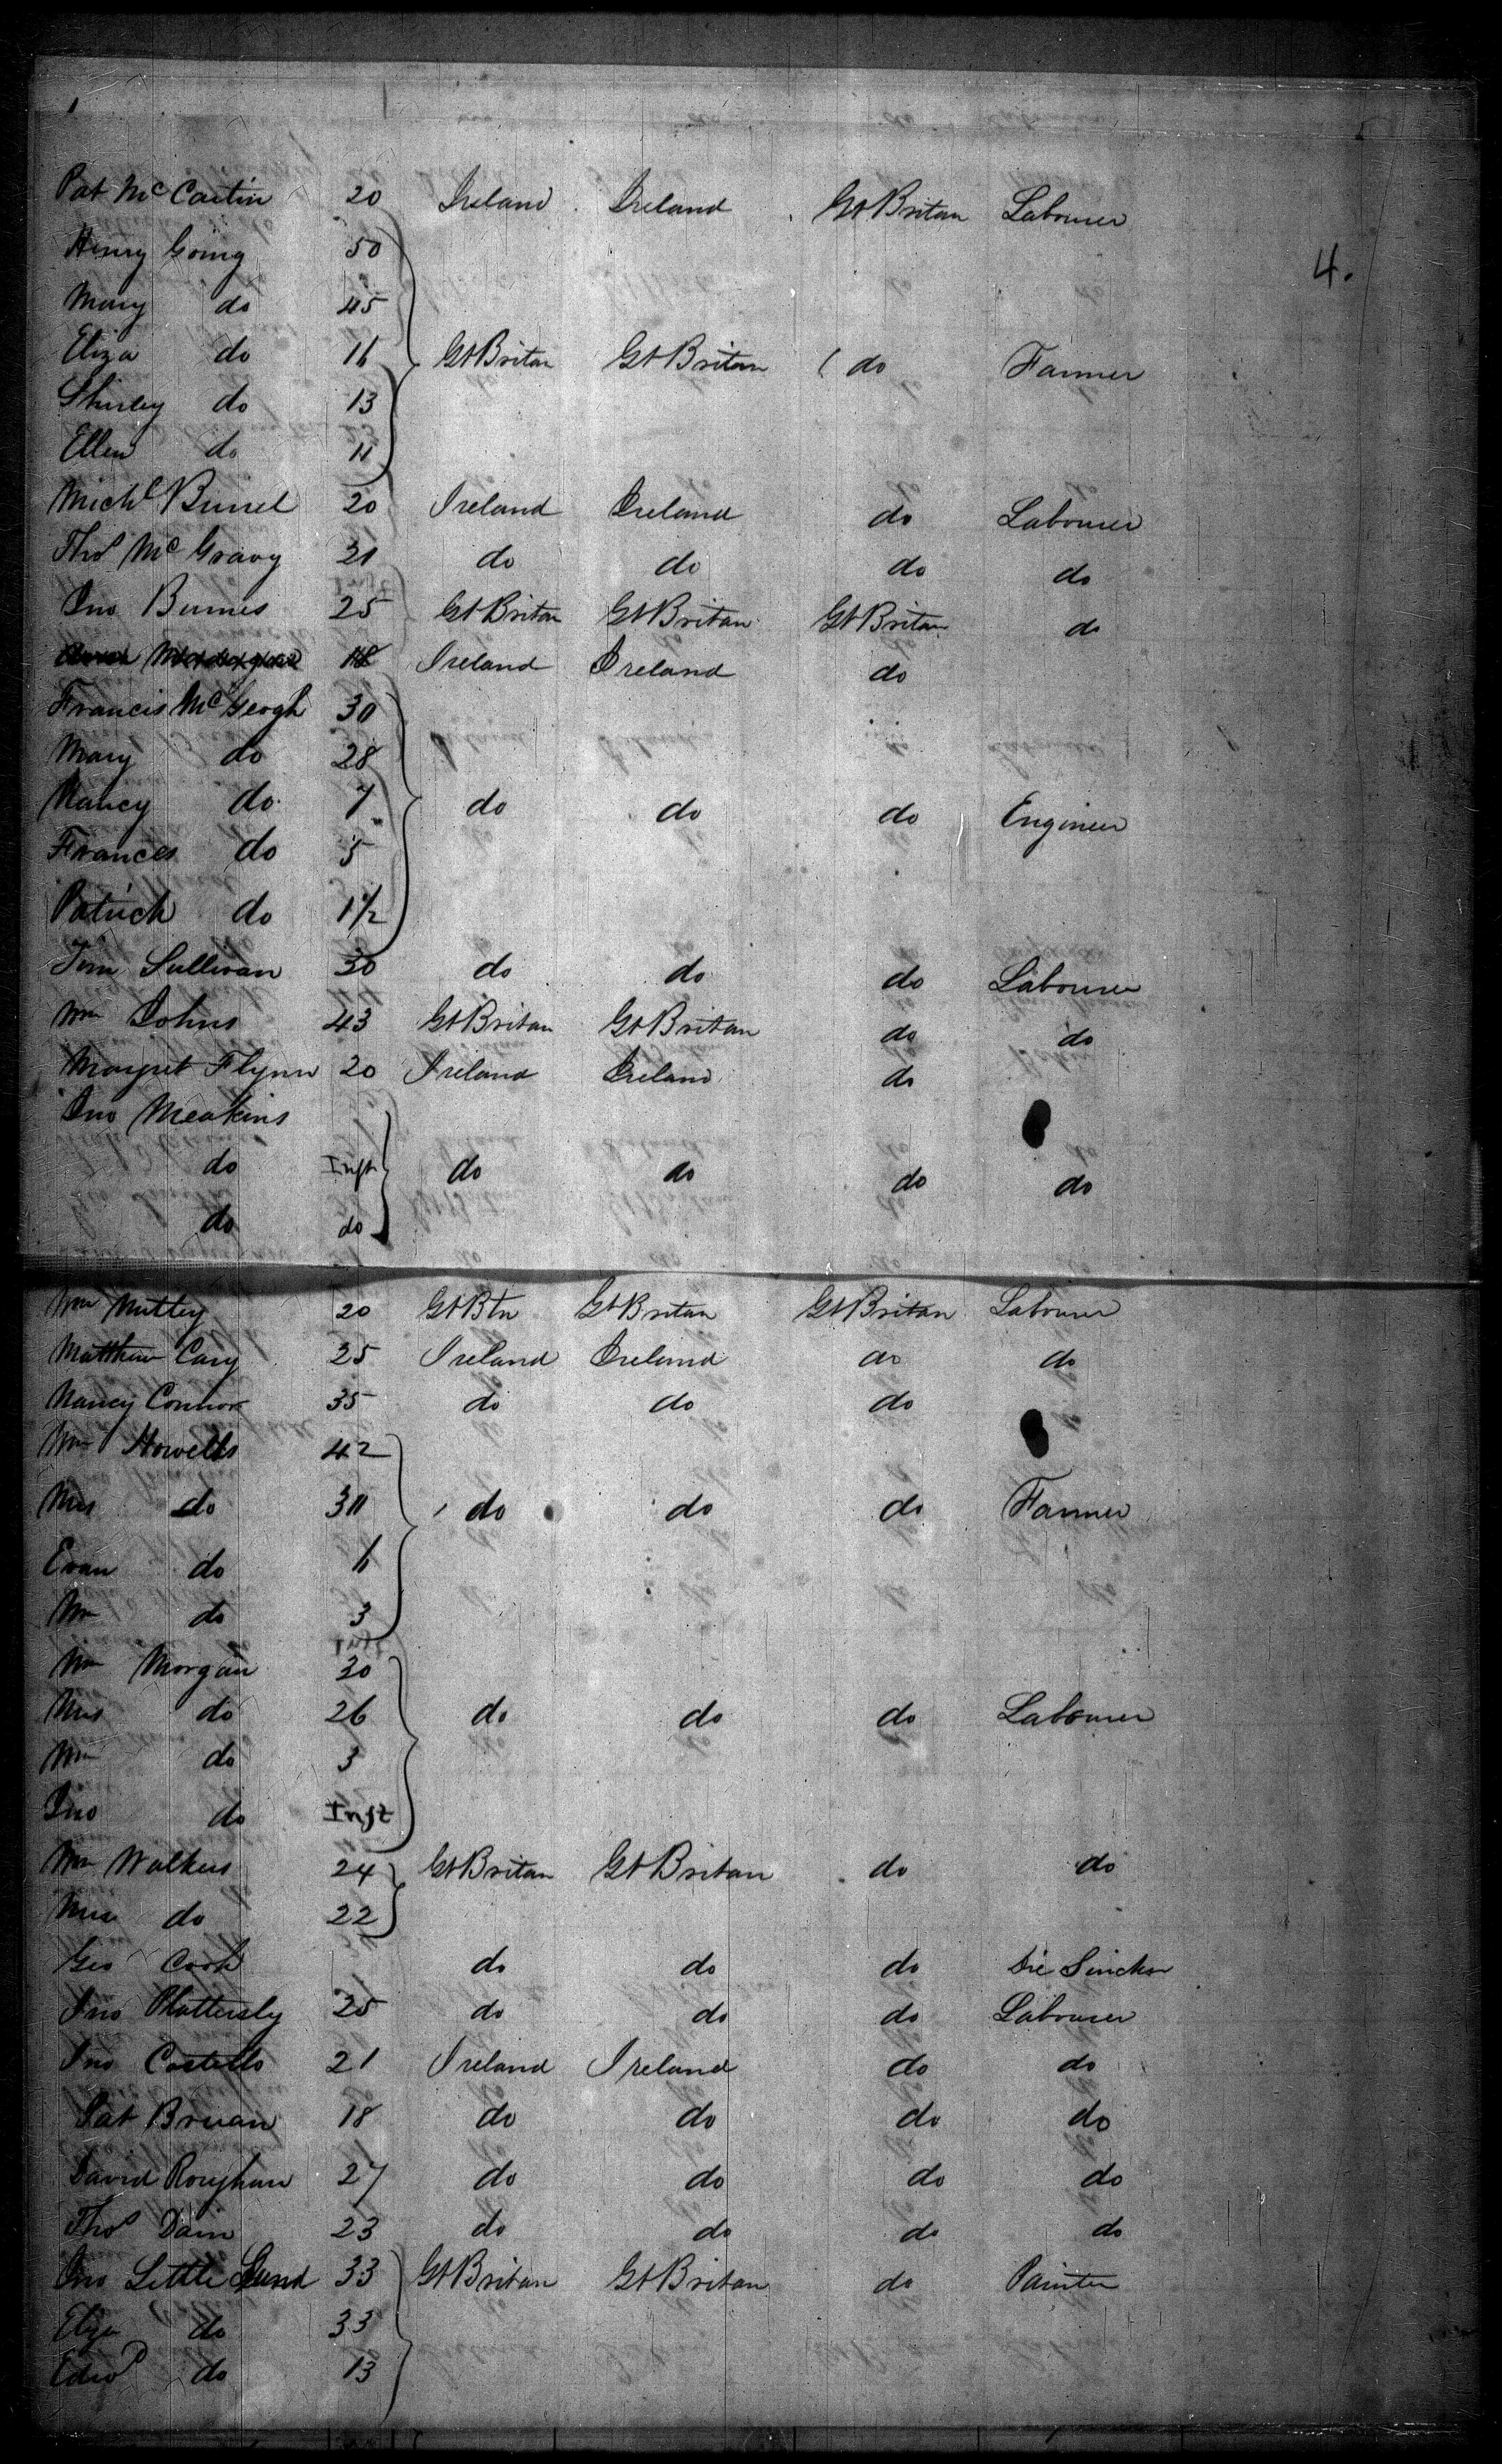 4.
Pat McCartin 20 Ireland Ireland Gt Britan Labourer
Henry Going 50
Mary do 45
Eliza do 16 Gt Britan Gt Britan do Farmer
Shirley do 13
Ellen do 11
Michl 20 Ireland Ireland do Labourer
Thos McGravy 21 do do do do
Jno Burnes 25 Gt Britan Gt Britan Gt Britan do
18 Ireland Ireland do
Francis McGeogh 30
Mary do 28
Nancy do 7 do do do Engineer
Frances do 5
Patrick do 1 1/2
Tim Sullivan 30 do do do Labourer
Wm Johns 43 Gt Britan Gt Britan do do
Margret Flynn 20 Ireland Ireland do
Jno Meakins
do Inft do do do do
do do
Wm Mutley 20 Gt Btn Gt Britan Gt Britan Labourer
Matthew Cary 25 Ireland Ireland do do
Nancy Connor 35 do do do
Wm Howells 42
Mrs do 30 do do do Farmer
Evan do 6
Wm do 3
Wm Morgan 30
Mrs do 26 do do do Labourer
Wm do 3
Jno do Inft
Wm Walkers 24 Gt Britan Gt Britan do do
Mrs do 22
Geo Cook do do do Die Sincker
Jno Plattersly 25 do do do Labourer
Jno Costello 21 Ireland Ireland do do
Pat Bruan 18 do do do do
David Roughan 27 do do do do
Thos Dain 23 do do do do
Jno Little Lund 33 Gt Britan Gt Britan do Painter
Eliza do 33
Edwd do 13